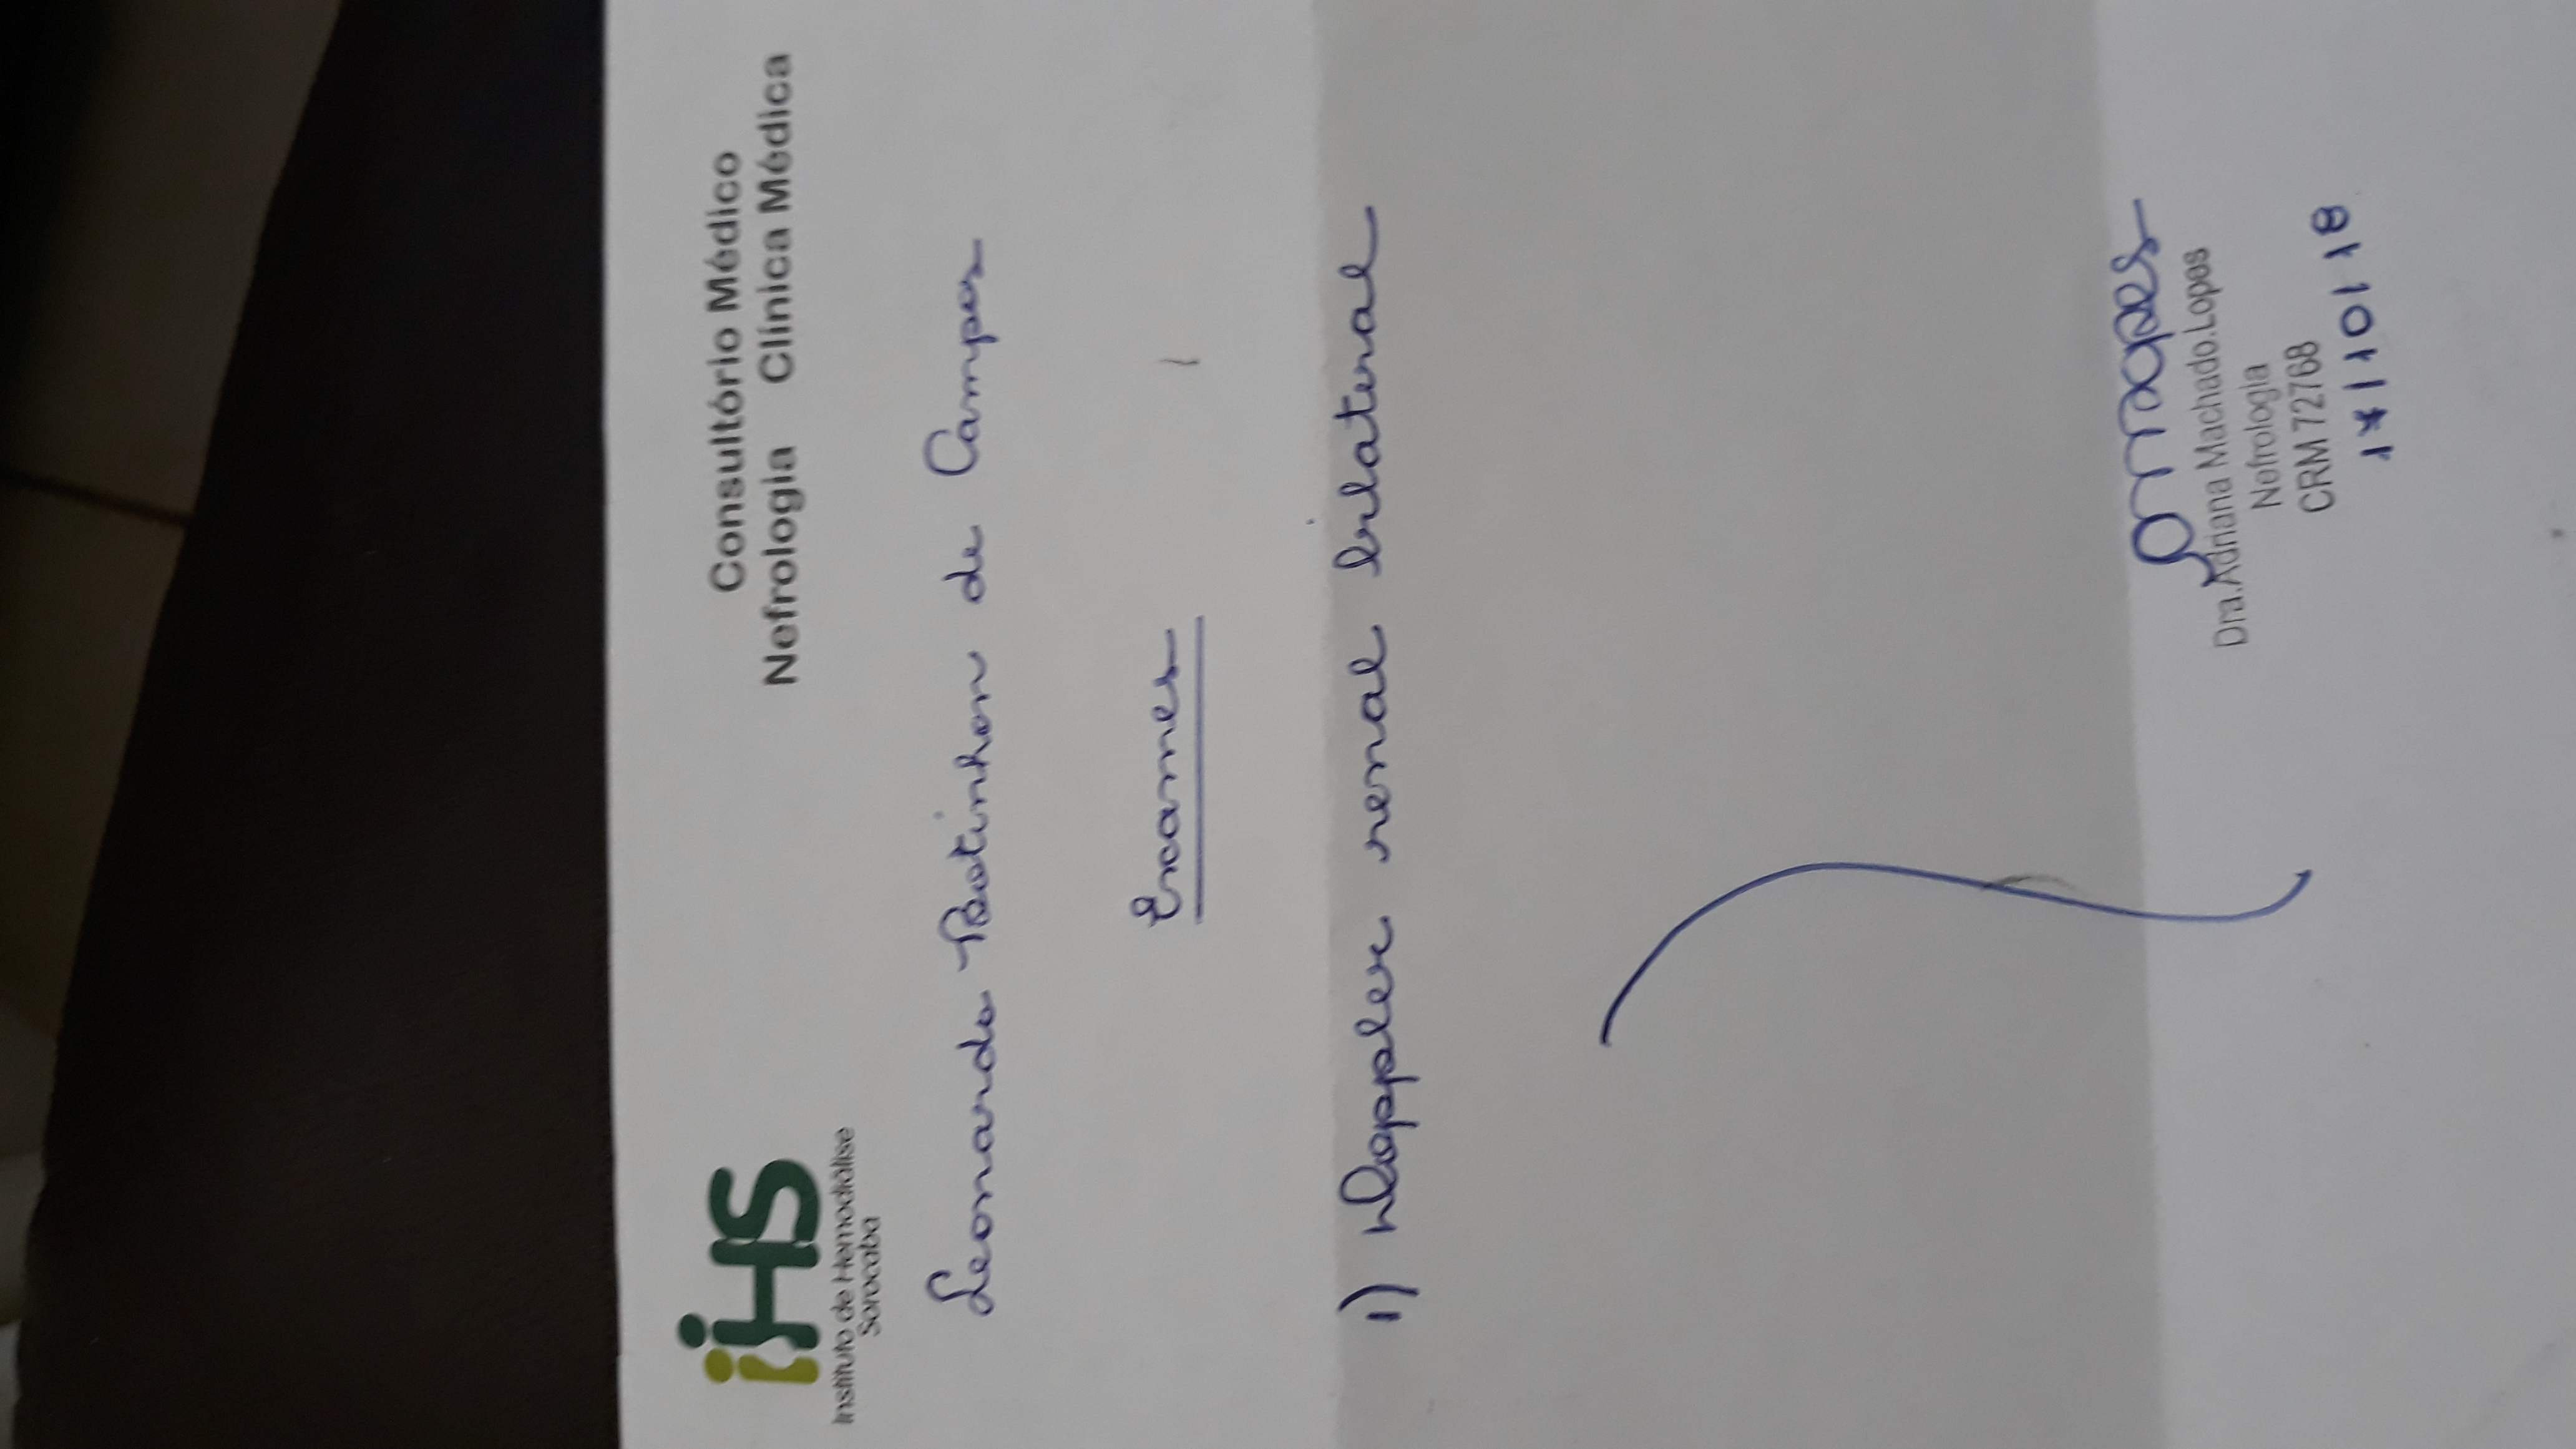 iHS
Instituto de Hemodiálise
Sorocaba
Consultório Médico
Nefrologia Clínica Médica
Leonardo de Campos
Exames
1) Doppler renal bilateral
Dra.Adriana Machado.Lopes
Nefrologia
CRM 72768
17/10/18